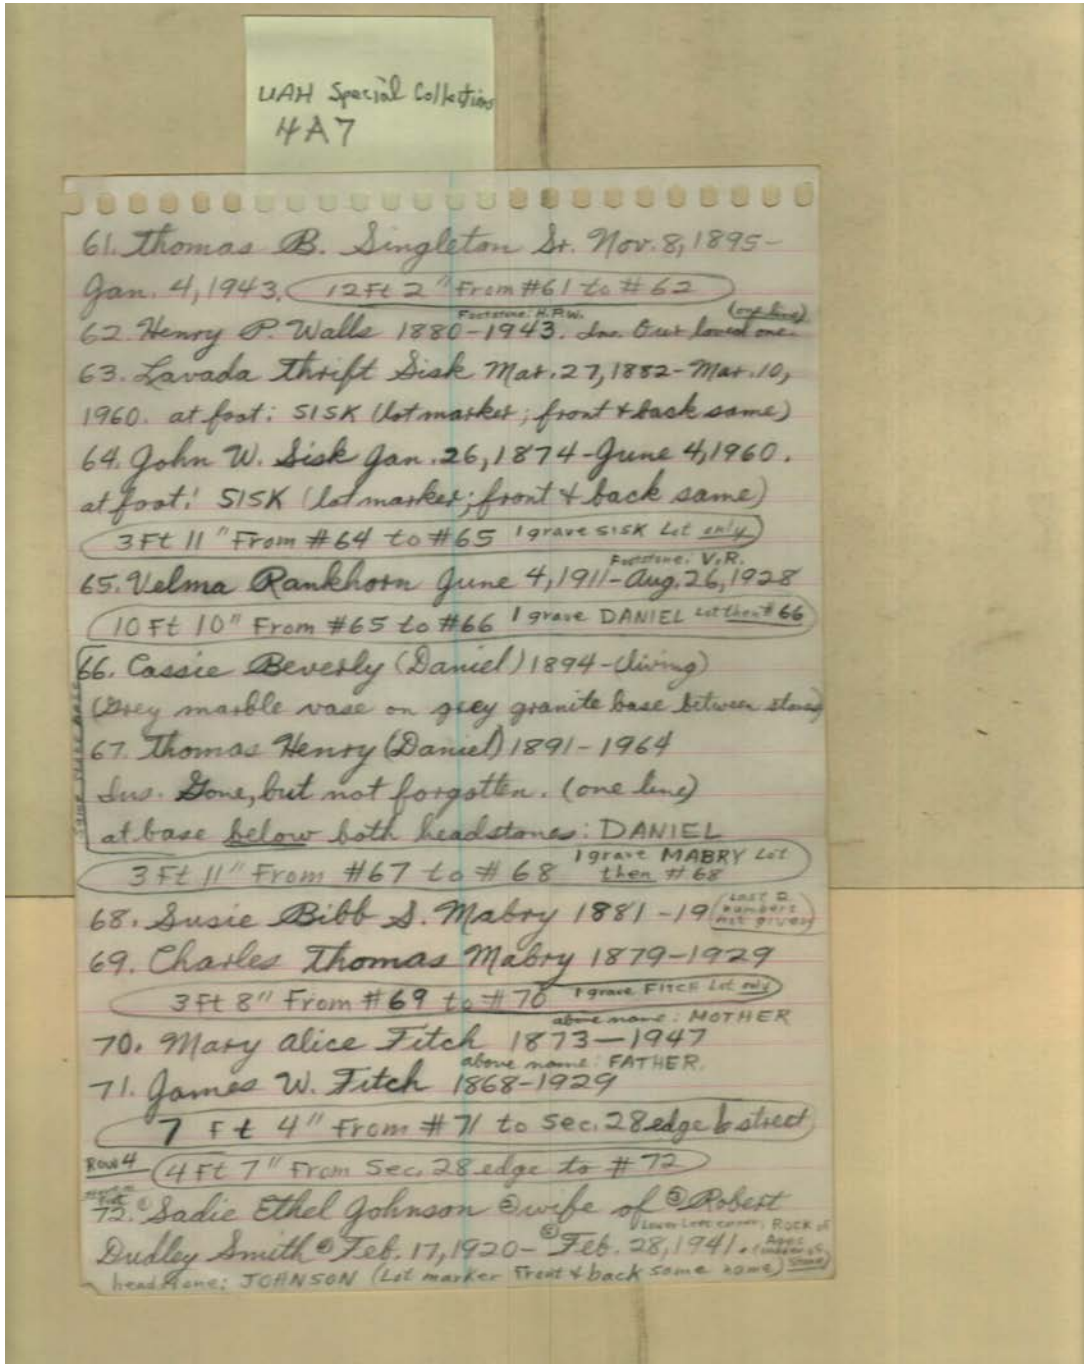 UAH Special Collections
4A7
61. Thomas B. Singleton Sr. Nov. 8, 1895-
Jan. 4, 1943. 12 Ft 2" From #61 to #62
Footstone: H.P.W. (one line)
62. Henry P. Walls 1880-1943. Ins. Our loved one.
63. Lavada Thrift Sisk Mar. 27, 1882-Mar. 10,
1960. at foot: SISK (lot marker; front + back same)
64. John W. Sisk Jan. 26, 1874-June 4, 1960.
at foot: SISK (lot marker; front + back same)
3 Ft 11" From #64 to #65 1 grave SISK Lot only
Footstone: V.R.
65. Velma Rankhorn June 4, 1911-Aug. 26, 1928
10 Ft 10" From #65 to #66 1 grave DANIEL Lot then #66
66. Cassie Beverly (Daniel) 1894-(living)
(Grey marble vase on grey granite base between stones)
67. Thomas Henry (Daniel) 1891-1964
Ins. Gone, but not forgotten. (one line)
at base below both headstones: DANIEL
3 Ft 11" From #67 to #68 1 grave MABRY Lot
then #68
68. Susie Bibb S. Mabry 1881-19 (Last 2
numbers
not given)
69. Charles Thomas Mabry 1879-1929
3 Ft 8" From #69 to #70 1 grave FITCH Lot only
above name: MOTHER
70. Mary Alice Fitch 1873-1947
above name: FATHER.
71. James W. Fitch 1868-1929
7 Ft 4" From #71 to Sec. 28 edge & street
Row 4 4 Ft 7" From Sec. 28 edge to #72
72. ① Sadie Ethel Johnson ② wife of ③ Robert
Lower Left corner: ROCK of
Dudley Smith ④ Feb. 17, 1920-⑤ Feb. 28, 1941. Ages
headstone: JOHNSON (Lot marker Front + back same name) stone)